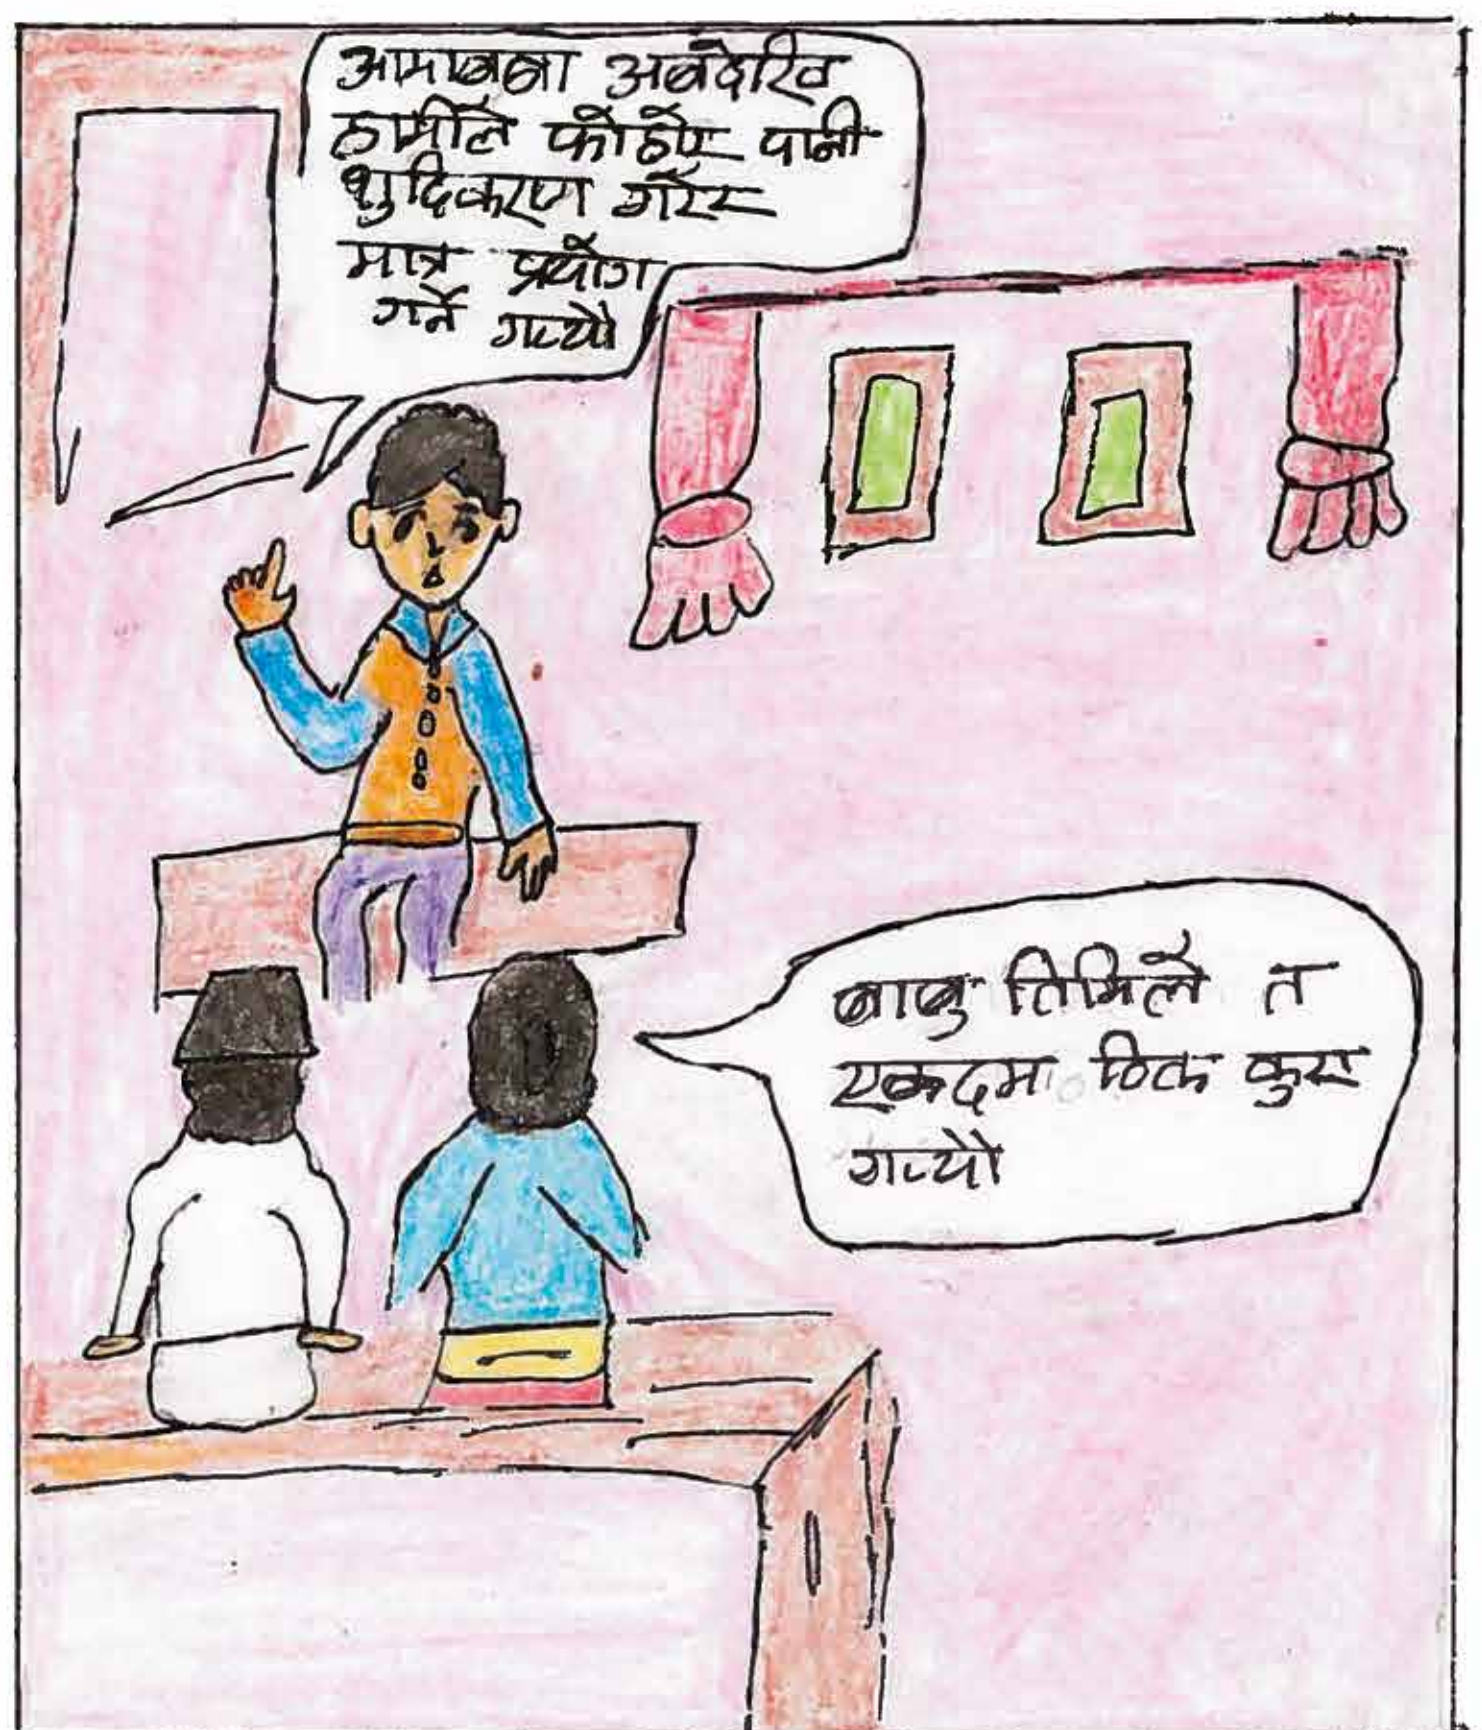 आमाबबा अबदेखि
हामीले फोहोर पानी
शुद्दिकरण गरेर
मात्र प्रयोग
गर्ने गर्‍यौ
बाबु तिमिले त
एकदमा ठिक कुरा
गर्‍यौ